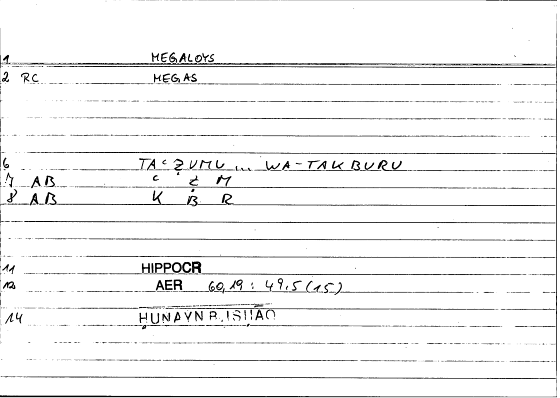 1 MEGALOYS
2 RC MEGAS
6 TAʿẒUMU ... WA-TAKBURU
7 AB ʿ Ẓ M
8 AB K B R
11 HIPPOCR
12 AER 60,19 : 49,5 (15)
14 ḤUNAYN B. ISḤAQ